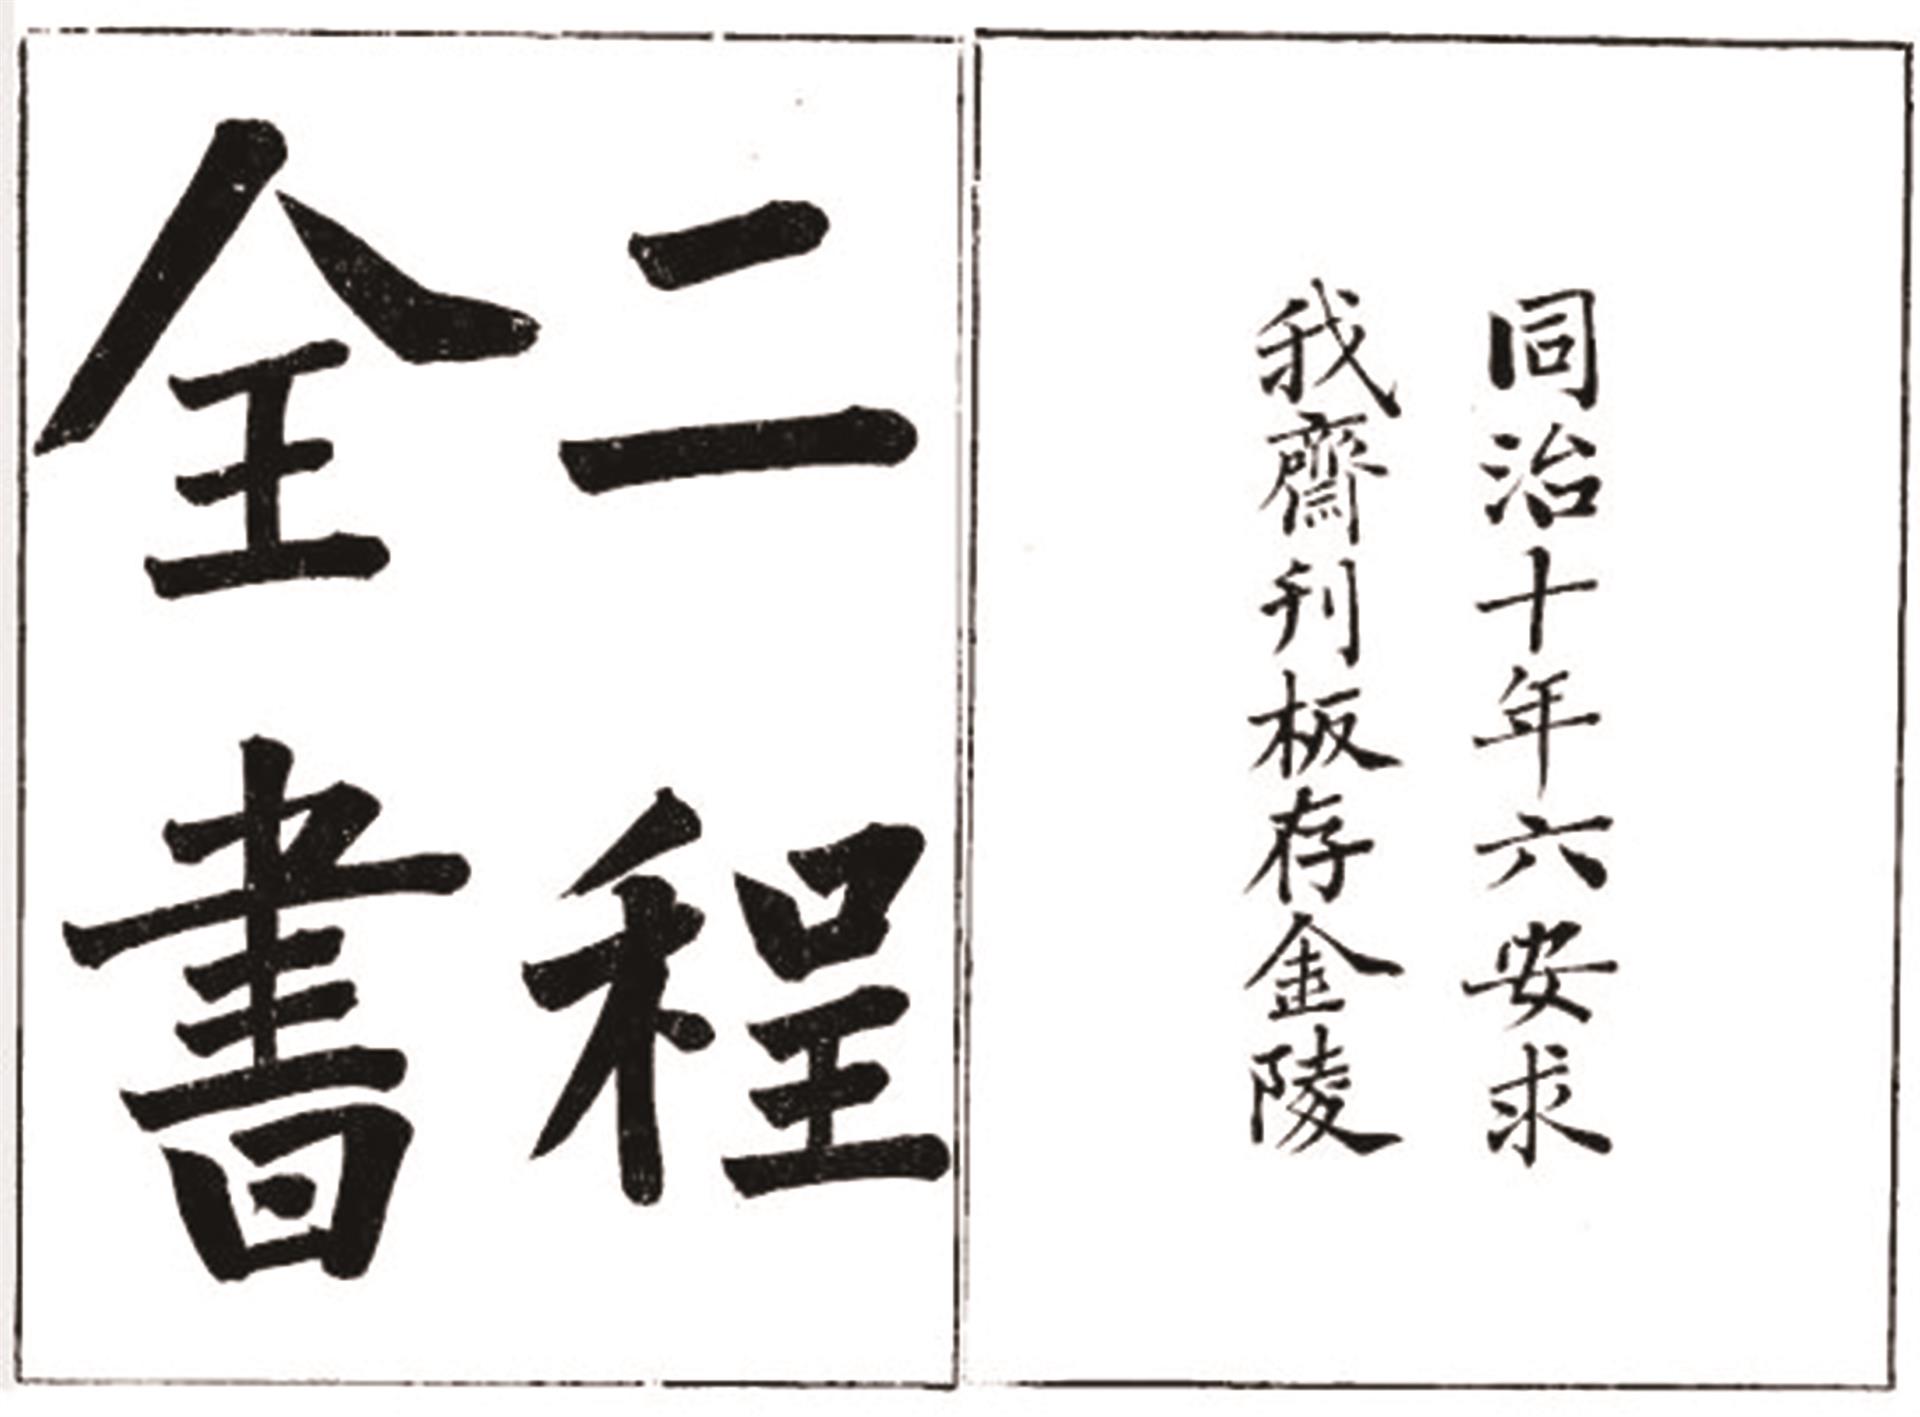 同治十年六安求
我齋刊板存金陵
二程
全書